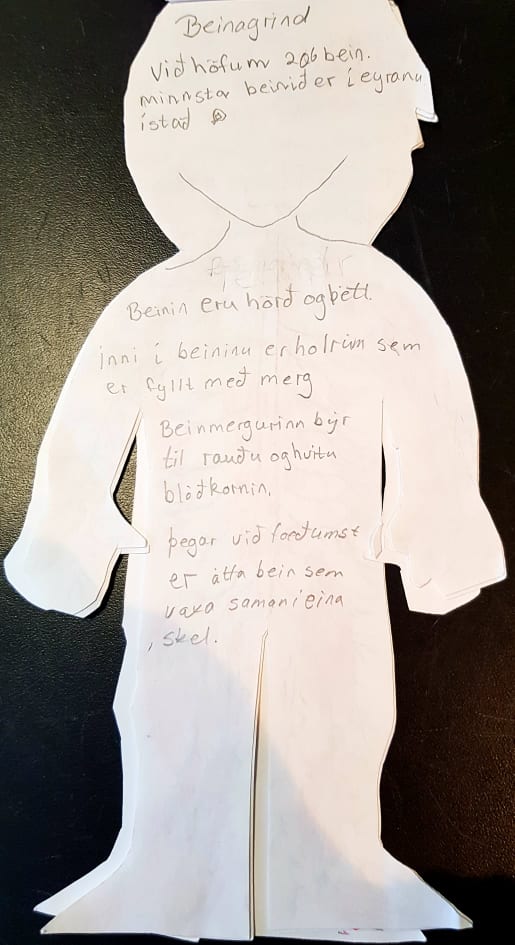 Beinagrind
Við höfum 206 bein.
minnsta beinið er í eyranu
ístað
Beinin eru hörð og þétt.
inni í beininu er holrim sem
er fyllt með merg
Beinmergurinn býr
til rauðu og hvítu
blóðkornin.
þegar við foeðumst
er átta bein sem
vaxa saman í eina
, skel.